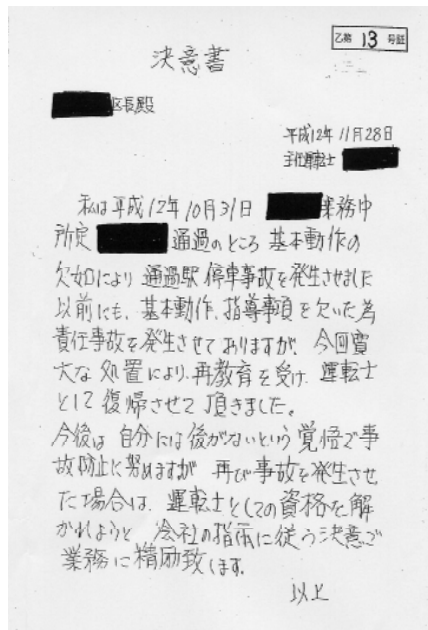 乙第 13 号証
決意書
区長殿
平成12年11月28日
主任運転士
私は平成12年10月31日 業務中
所定 通過のところ 基本動作の
欠如により 通過駅 停車事故を発生させました
以前にも、基本動作、指導事項を欠いた為
責任事故を発生させておりますが、今回寛
大な処置により、再教育を受け、運転士
として復帰させて頂きました。
今後は 自分には後がないという覚悟で事
故防止に努めますが 再び事故を発生させ
た場合は、運転士としての資格を解
かれようと 会社の指示に従う決意で
業務に精励致します。
以上